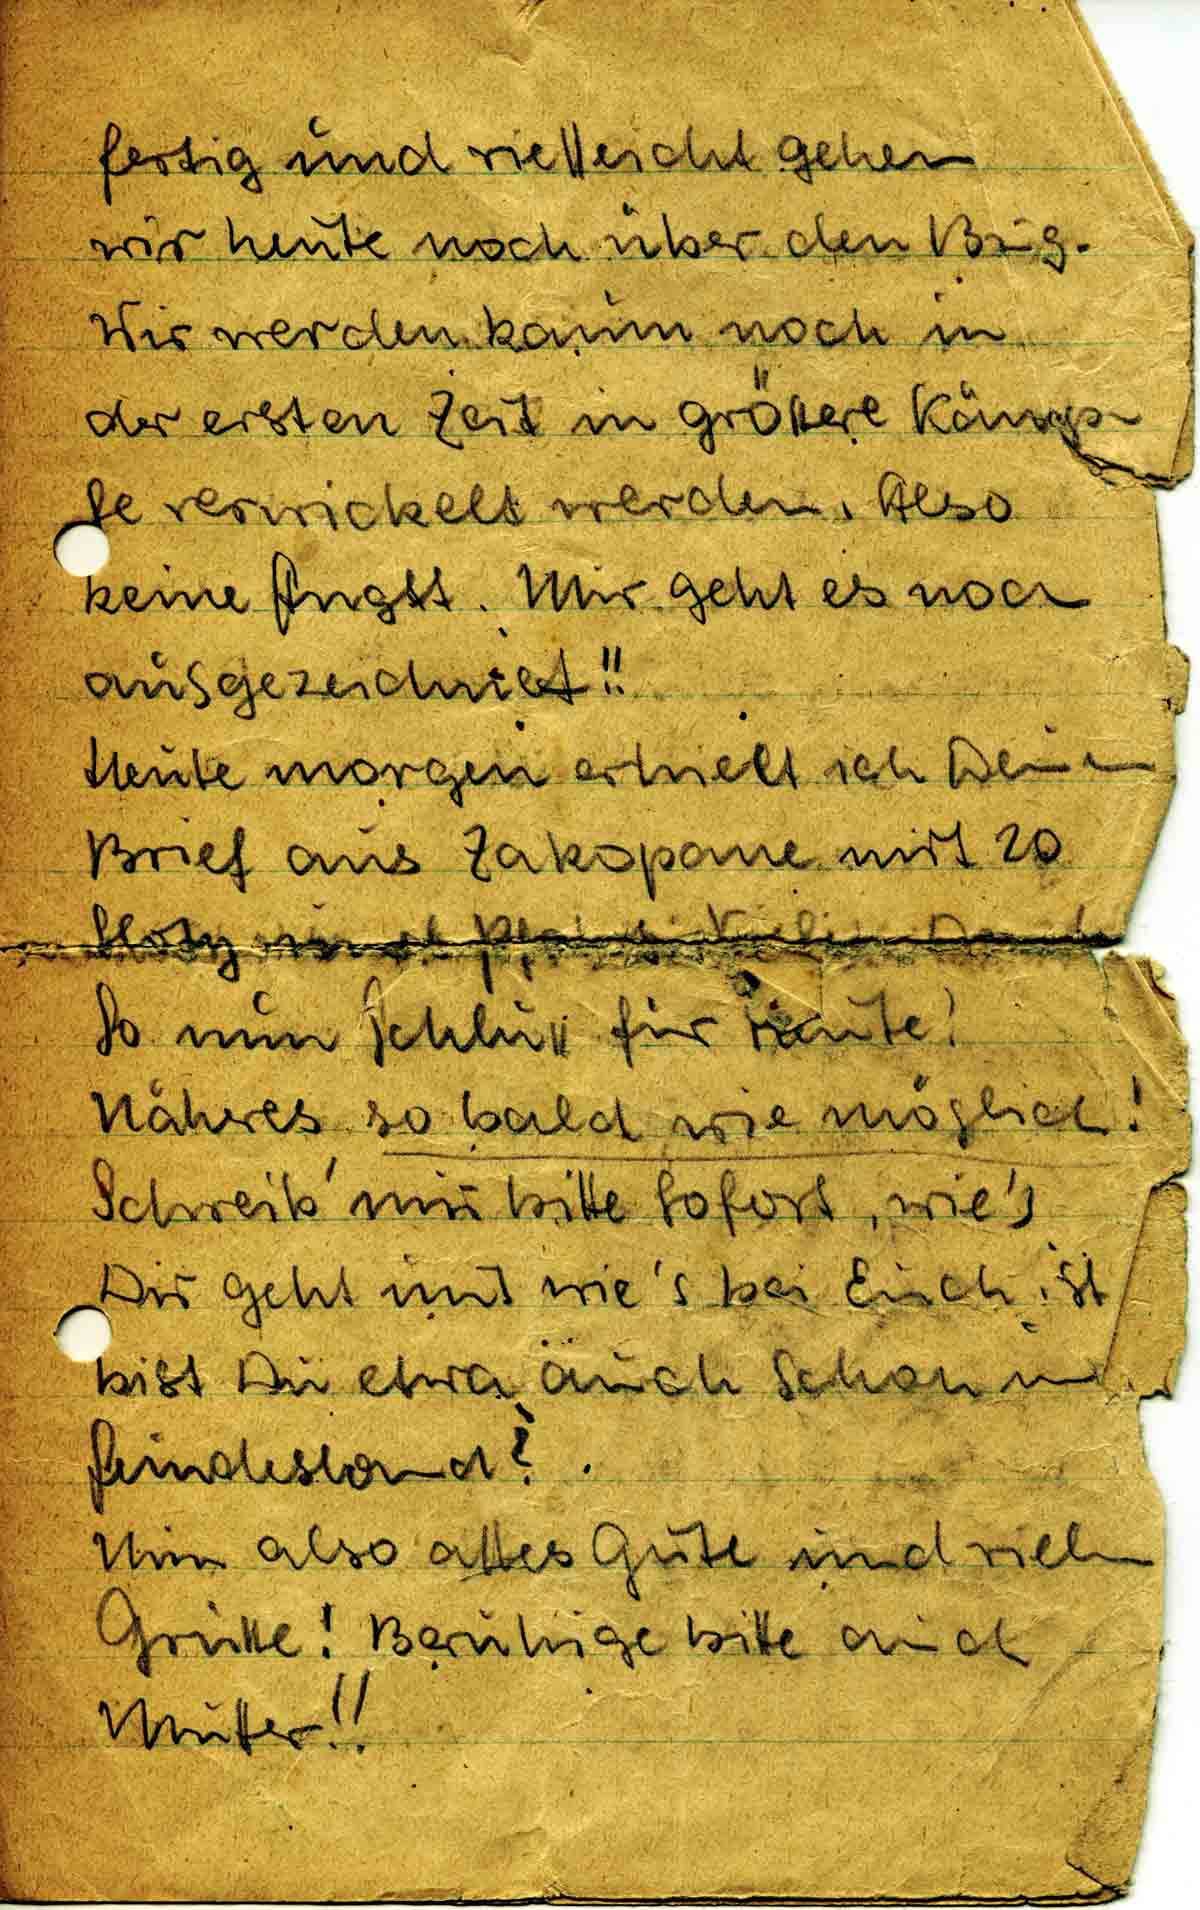 fertig und vielleicht gehen
wir heute noch über den Bug.
Wir werden kaum noch in
der ersten Zeit in größere Kämp-
fe verwickelt werden. Also
keine Angst. Mir geht es noch
ausgezeichnet!!
Heute morgen erhielt ich Deinen
Brief aus Zakopane mit 20
Sloty
So nun Schluß für heute!
Näheres so bald wie möglich!
Schreib' mir bitte sofort, wie's
Dir geht und wie's bei Euch ist
bist Du etwa auch schon in
Feindesland?
Nun also alles Gute und viele
Grüße! Beruhige bitte auch
Mutter!!